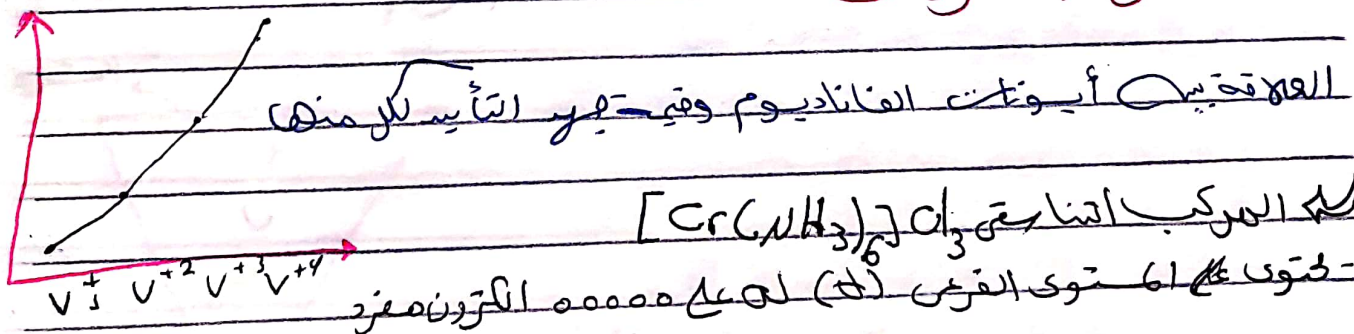 العلاقة بين أيونات الفاناديوم وقيم جهد التأين لكل منها
V⁺ V⁺² V⁺³ V⁺⁴
المركب التناسقي [Cr(NH₃)₆]Cl₃
المستوى الفرعي (d) له على ooooo الكترون مفرد